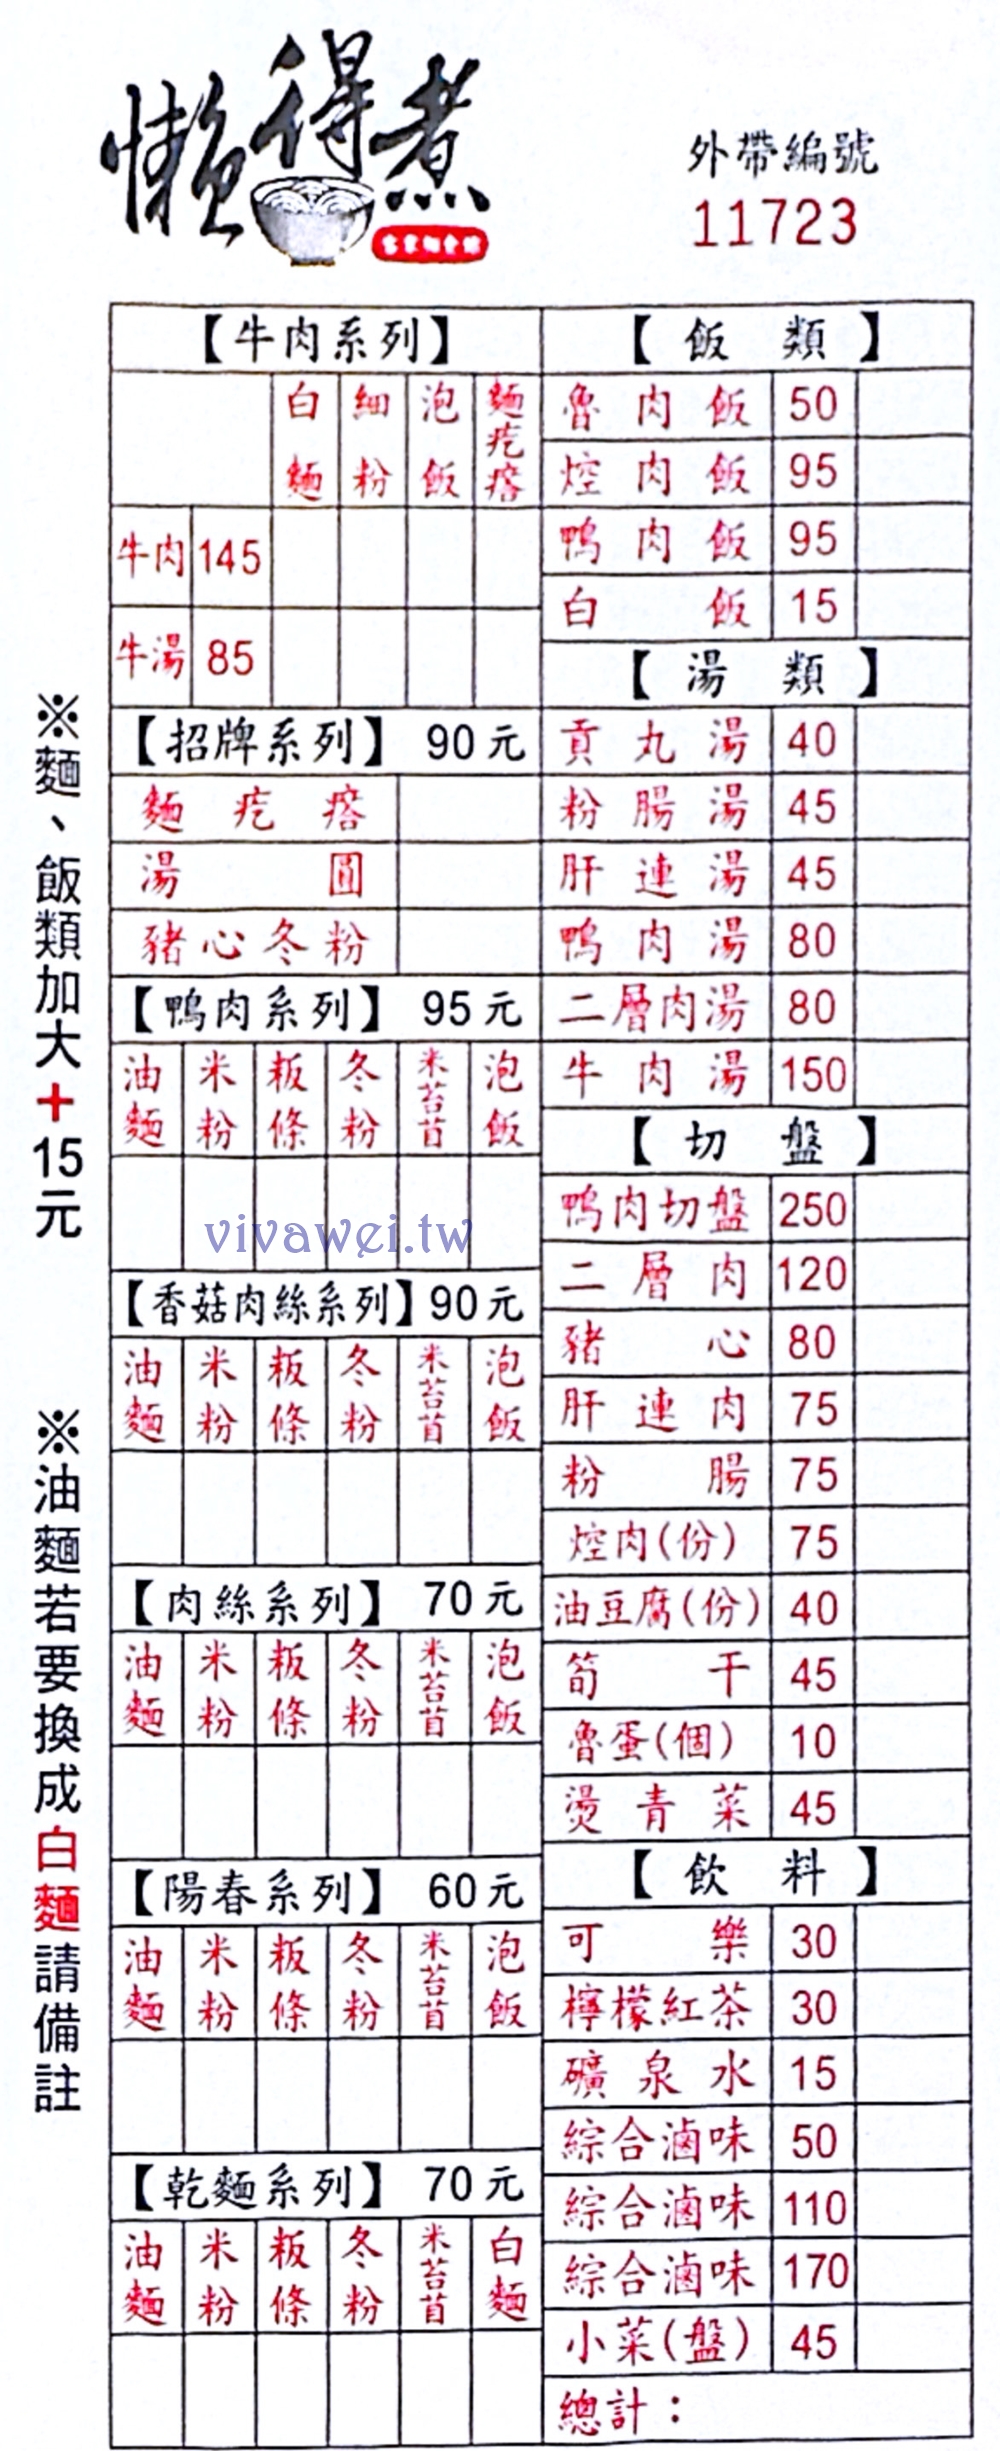 懶得煮
外帶編號
11723
※麵、飯類加大+15元
※油麵若要換成白麵請備註
【牛肉系列】
白麵 細粉 泡飯 麵疙瘩
牛肉 145
牛湯 85
【招牌系列】 90元
麵疙瘩
湯圓
豬心冬粉
【鴨肉系列】 95元
油麵 米粉 粄條 冬粉 米苔苜 泡飯
【香菇肉絲系列】90元
油麵 米粉 粄條 冬粉 米苔苜 泡飯
【肉絲系列】 70元
油麵 米粉 粄條 冬粉 米苔苜 泡飯
【陽春系列】 60元
油麵 米粉 粄條 冬粉 米苔苜 泡飯
【乾麵系列】 70元
油麵 米粉 粄條 冬粉 米苔苜 白麵
【飯類】
魯肉飯 50
焢肉飯 95
鴨肉飯 95
白飯 15
【湯類】
貢丸湯 40
粉腸湯 45
肝連湯 45
鴨肉湯 80
二層肉湯 80
牛肉湯 150
【切盤】
鴨肉切盤 250
二層肉 120
豬心 80
肝連肉 75
粉腸 75
焢肉(份) 75
油豆腐(份) 40
筍干 45
魯蛋(個) 10
燙青菜 45
【飲料】
可樂 30
檸檬紅茶 30
礦泉水 15
綜合滷味 50
綜合滷味 110
綜合滷味 170
小菜(盤) 45
總計：
vivawei.tw